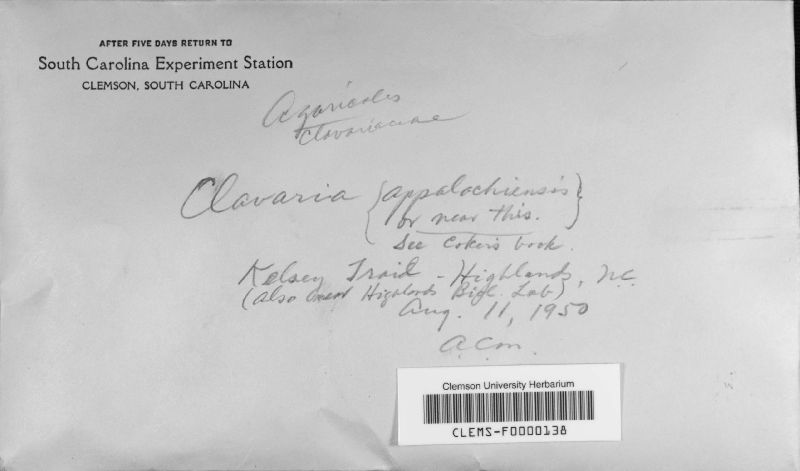 AFTER FIVE DAYS RETURN TO
South Carolina Experiment Station
CLEMSON, SOUTH CAROLINA
Agaricales
Clavariaceae
Clavaria {appalachiensis}
or near this.
See Coker's book.
Kelsey Trail - Highlands, N.C.
(also near Highlands Biol. Lab)
Aug. 11, 1950
A.C.M.
Clemson University Herbarium
CLEMS-F0000138